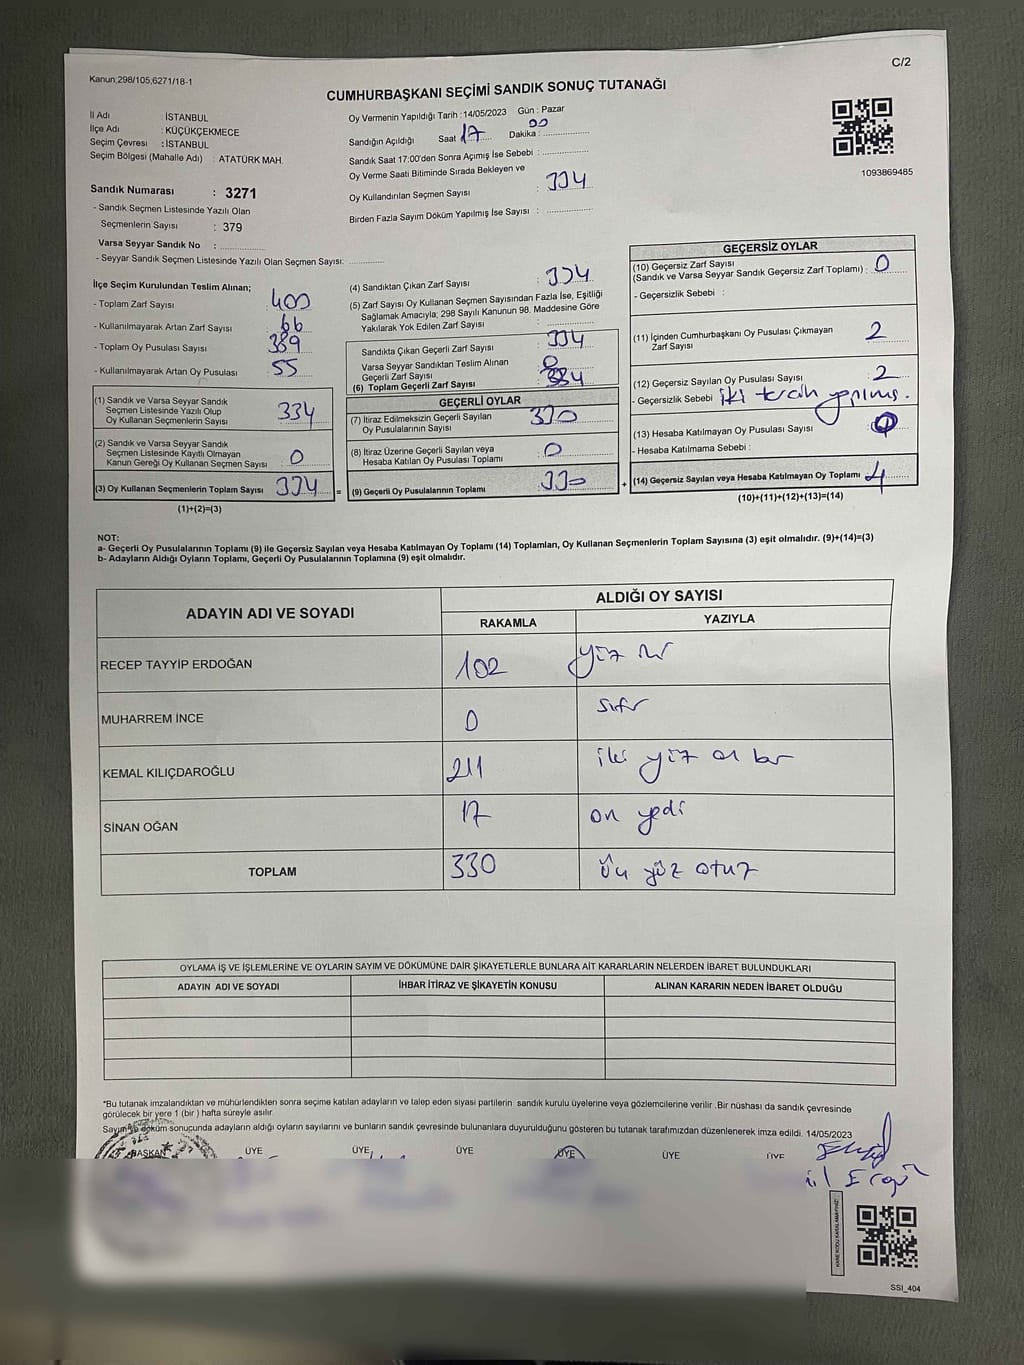 Kanun;298/105,6271/18-1
C/2
CUMHURBAŞKANI SEÇİMİ SANDIK SONUÇ TUTANAĞI
İl Adı : İSTANBUL
İlçe Adı : KÜÇÜKÇEKMECE
Seçim Çevresi : İSTANBUL
Seçim Bölgesi (Mahalle Adı) : ATATÜRK MAH.
Sandık Numarası : 3271
- Sandık Seçmen Listesinde Yazılı Olan
Seçmenlerin Sayısı : 379
Varsa Seyyar Sandık No :
- Seyyar Sandık Seçmen Listesinde Yazılı Olan Seçmen Sayısı:
Oy Vermenin Yapıldığı Tarih :14/05/2023 Gün : Pazar
Sandığın Açıldığı Saat 17 Dakika : 00
Sandık Saat 17:00'den Sonra Açımış İse Sebebi :
Oy Verme Saati Bitiminde Sırada Bekleyen ve
Oy Kullandırılan Seçmen Sayısı : 334
Birden Fazla Sayım Döküm Yapılmış İse Sayısı :
1093869485
İlçe Seçim Kurulundan Teslim Alınan;
- Toplam Zarf Sayısı : 400
- Kullanılmayarak Artan Zarf Sayısı : 66
- Toplam Oy Pusulası Sayısı : 389
- Kullanılmayarak Artan Oy Pusulası : 55
(1) Sandık ve Varsa Seyyar Sandık
Seçmen Listesinde Yazılı Olup
Oy Kullanan Seçmenlerin Sayısı : 334
(2) Sandık ve Varsa Seyyar Sandık
Seçmen Listesinde Kayıtlı Olmayan
Kanun Gereği Oy Kullanan Seçmen Sayısı : 0
(3) Oy Kullanan Seçmenlerin Toplam Sayısı : 334
(1)+(2)=(3)
(4) Sandıktan Çıkan Zarf Sayısı : 334
(5) Zarf Sayısı Oy Kullanan Seçmen Sayısından Fazla İse, Eşitliği
Sağlamak Amacıyla; 298 Sayılı Kanunun 98. Maddesine Göre
Yakılarak Yok Edilen Zarf Sayısı :
Sandıkta Çıkan Geçerli Zarf Sayısı : 334
Varsa Seyyar Sandıktan Teslim Alınan
Geçerli Zarf Sayısı : 0
(6) Toplam Geçerli Zarf Sayısı : 334
GEÇERLİ OYLAR
(7) İtiraz Edilmeksizin Geçerli Sayılan
Oy Pusulalarının Sayısı : 330
(8) İtiraz Üzerine Geçerli Sayılan veya
Hesaba Katılan Oy Pusulası Toplamı : 0
= (9) Geçerli Oy Pusulalarının Toplamı : 330
GEÇERSİZ OYLAR
(10) Geçersiz Zarf Sayısı
(Sandık ve Varsa Seyyar Sandık Geçersiz Zarf Toplamı) : 0
- Geçersizlik Sebebi :
(11) İçinden Cumhurbaşkanı Oy Pusulası Çıkmayan
Zarf Sayısı : 2
(12) Geçersiz Sayılan Oy Pusulası Sayısı : 2
- Geçersizlik Sebebi : iki tercih yapılmış.
(13) Hesaba Katılmayan Oy Pusulası Sayısı : 0
- Hesaba Katılmama Sebebi :
+ (14) Geçersiz Sayılan veya Hesaba Katılmayan Oy Toplamı : 4
(10)+(11)+(12)+(13)=(14)
NOT:
a- Geçerli Oy Pusulalarının Toplamı (9) ile Geçersiz Sayılan veya Hesaba Katılmayan Oy Toplamı (14) Toplamları, Oy Kullanan Seçmenlerin Toplam Sayısına (3) eşit olmalıdır. (9)+(14)=(3)
b- Adayların Aldığı Oyların Toplamı, Geçerli Oy Pusulalarının Toplamına (9) eşit olmalıdır.
ADAYIN ADI VE SOYADI
ALDIĞI OY SAYISI
RAKAMLA YAZIYLA
RECEP TAYYİP ERDOĞAN 102 yüz iki
MUHARREM İNCE 0 sıfır
KEMAL KILIÇDAROĞLU 211 iki yüz on bir
SİNAN OĞAN 17 on yedi
TOPLAM 330 üç yüz otuz
OYLAMA İŞ VE İŞLEMLERİNE VE OYLARIN SAYIM VE DÖKÜMÜNE DAİR ŞİKAYETLERLE BUNLARA AİT KARARLARIN NELERDEN İBARET BULUNDUKLARI
ADAYIN ADI VE SOYADI İHBAR İTİRAZ VE ŞİKAYETİN KONUSU ALINAN KARARIN NEDEN İBARET OLDUĞU
*Bu tutanak imzalandıktan ve mühürlendikten sonra seçime katılan adayların ve talep eden siyasi partilerin sandık kurulu üyelerine veya gözlemcilerine verilir .Bir nüshası da sandık çevresinde
görülecek bir yere 1 (bir ) hafta süreyle asılır.
Sayım ve döküm sonucunda adayların aldığı oyların sayılarını ve bunların sandık çevresinde bulunanlara duyurulduğunu gösteren bu tutanak tarafımızdan düzenlenerek imza edildi. 14/05/2023
BAŞKAN ÜYE ÜYE ÜYE ÜYE ÜYE ÜYE
KARE KODU KARALAMAYINIZ
SSI_404